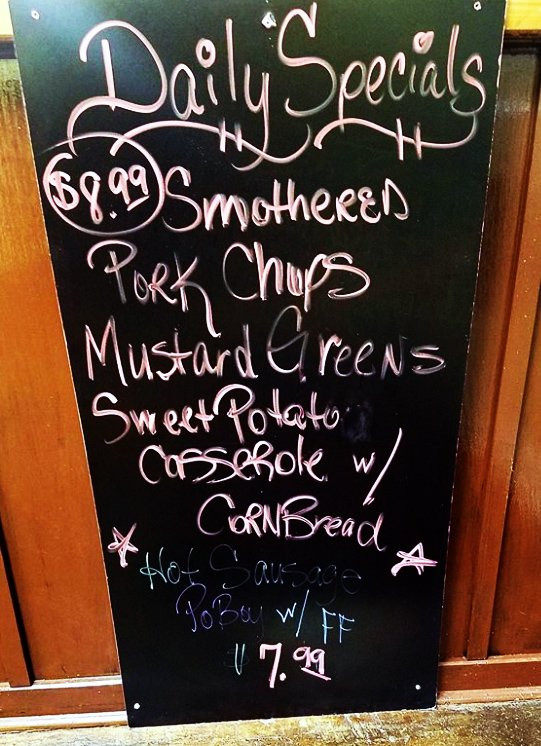 Daily Specials
$8.99 Smothered
Pork Chops
Mustard Greens
Sweet Potato
Casserole w/
CornBread
Hot Sausage
PoBoy w/ FF
$7.99